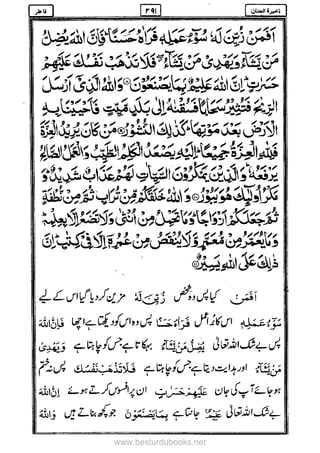 فاطر ۲۹۱ ذخیرۃ الجنان
اَفَمَنْ زُیِّنَ لَهٗ سُوْٓءُ عَمَلِهٖ فَرَاٰهُ حَسَنًا فَاِنَّ اللّٰهَ یُضِلُّ
مَنْ یَّشَآءُ وَیَهْدِیْ مَنْ یَّشَآءُ فَلَا تَذْهَبْ نَفْسُكَ عَلَیْهِمْ
حَسَرٰتٍ اِنَّ اللّٰهَ عَلِیْمٌۢ بِمَا یَصْنَعُوْنَ۝ وَاللّٰهُ الَّذِیْٓ اَرْسَلَ
الرِّیٰحَ فَتُثِیْرُ سَحَابًا فَسُقْنٰهُ اِلٰی بَلَدٍ مَّیِّتٍ فَاَحْیَیْنَا بِهِ
الْاَرْضَ بَعْدَ مَوْتِهَا كَذٰلِكَ النُّشُوْرُ۝ مَنْ كَانَ یُرِیْدُ الْعِزَّةَ
فَلِلّٰهِ الْعِزَّةُ جَمِیْعًا اِلَیْهِ یَصْعَدُ الْكَلِمُ الطَّیِّبُ وَالْعَمَلُ الصَّالِحُ
یَرْفَعُهٗ وَالَّذِیْنَ یَمْكُرُوْنَ السَّیِّاٰتِ لَهُمْ عَذَابٌ شَدِیْدٌ وَ
مَكْرُ اُولٰٓئِكَ هُوَ یَبُوْرُ۝ وَاللّٰهُ خَلَقَكُمْ مِّنْ تُرَابٍ ثُمَّ مِنْ نُّطْفَةٍ
ثُمَّ جَعَلَكُمْ اَزْوَاجًا وَمَا تَحْمِلُ مِنْ اُنْثٰی وَلَا تَضَعُ اِلَّا بِعِلْمِهٖ
وَمَا یُعَمَّرُ مِنْ مُّعَمَّرٍ وَّلَا یُنْقَصُ مِنْ عُمُرِهٖٓ اِلَّا فِیْ كِتٰبٍ اِنَّ
ذٰلِكَ عَلَی اللّٰهِ یَسِیْرٌ۝
اَفَمَنْ کیا پس وہ شخص زُیِّنَ لَهٗ مزین کر دیا گیا اس کے لیے
سُوْٓءُ عَمَلِهٖ اس کا برا عمل فَرَاٰهُ حَسَنًا پس وہ اس کو دیکھتا ہے اچھا فَاِنَّ اللّٰهَ
پس بے شک اللہ تعالیٰ یُضِلُّ مَنْ یَّشَآءُ بہکاتا ہے جس کو چاہتا ہے وَیَهْدِیْ
مَنْ یَّشَآءُ اور ہدایت دیتا ہے جس کو چاہتا ہے فَلَا تَذْهَبْ نَفْسُكَ پس نہ ختم
ہو جائے آپ کی جان عَلَیْهِمْ حَسَرٰتٍ ان پر افسوس کرتے ہوئے اِنَّ اللّٰهَ
بے شک اللہ تعالیٰ عَلِیْمٌۢ جانتا ہے بِمَا یَصْنَعُوْنَ جو کچھ وہ بناتے ہیں وَاللّٰهُ
www.besturdubooks.net